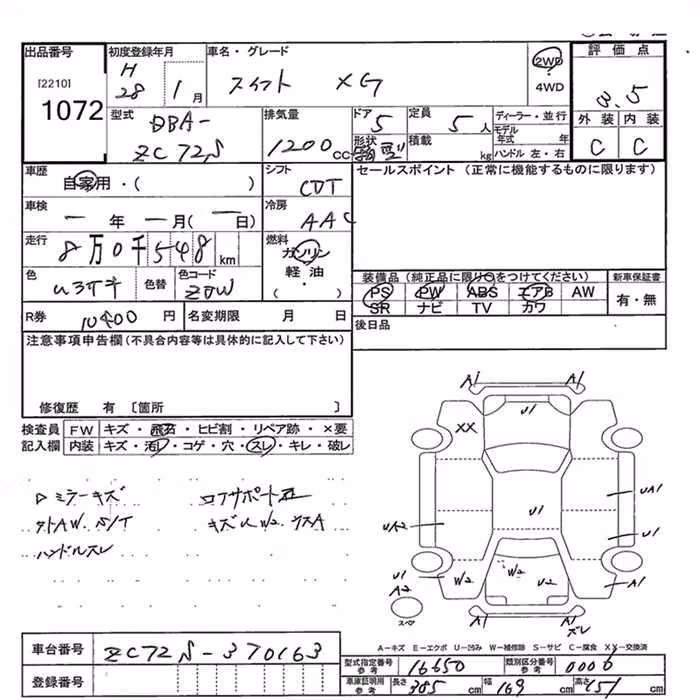 出品番号 初度登録年月 車名・グレード 評価点
[2210] H 28 1月 スイフト XG 2WD・4WD 3.5
1072
型式 排気量 ドア 定員 ディーラー・並行 外装 内装
DBA- 5 5人 モデル年式 年 C C
ZC72S 1200cc 形状 積載 kg ハンドル 左・右
車歴 シフト セールスポイント (正常に機能するものに限ります)
自家用・( ) CVT
車検 冷房
一年 一月(一日) AAC
走行 燃料
8万0千548km ガソリン
色 色替 色コード 軽油 装備品(純正品に限り○をつけてください) 新車保証書
ZJW ・( ) PS PW ABS エアB AW 有・無
SR ナビ TV カワ
R券 10400円 名変期限 月 日 後日品
注意事項申告欄(不具合内容等は具体的に記入して下さい)
修復歴 有〔箇所 〕
検査員 FW キズ・飛石・ヒビ割・リペア跡・×要
記入欄 内装 キズ・汚レ・コゲ・穴・スレ・キレ・破レ
ミラーキズ コアサポート
AW S/T キズ W2
ハンドルスレ
A1 A1
U1
XX
UA1
U1
UA2 U1
U1 W2 W2 U2 A1
A2
スペア A1 A1 ズレ
A-キズ E-エクボ U-凹み W-補修跡 S-サビ C-腐食 XX-交換済
車台番号 ZC72S-370163
型式指定番号 参考 16650 類別区分番号 参考 0006
登録番号 車庫証明用 参考 長さ 385cm 幅 169cm 高さ 151cm